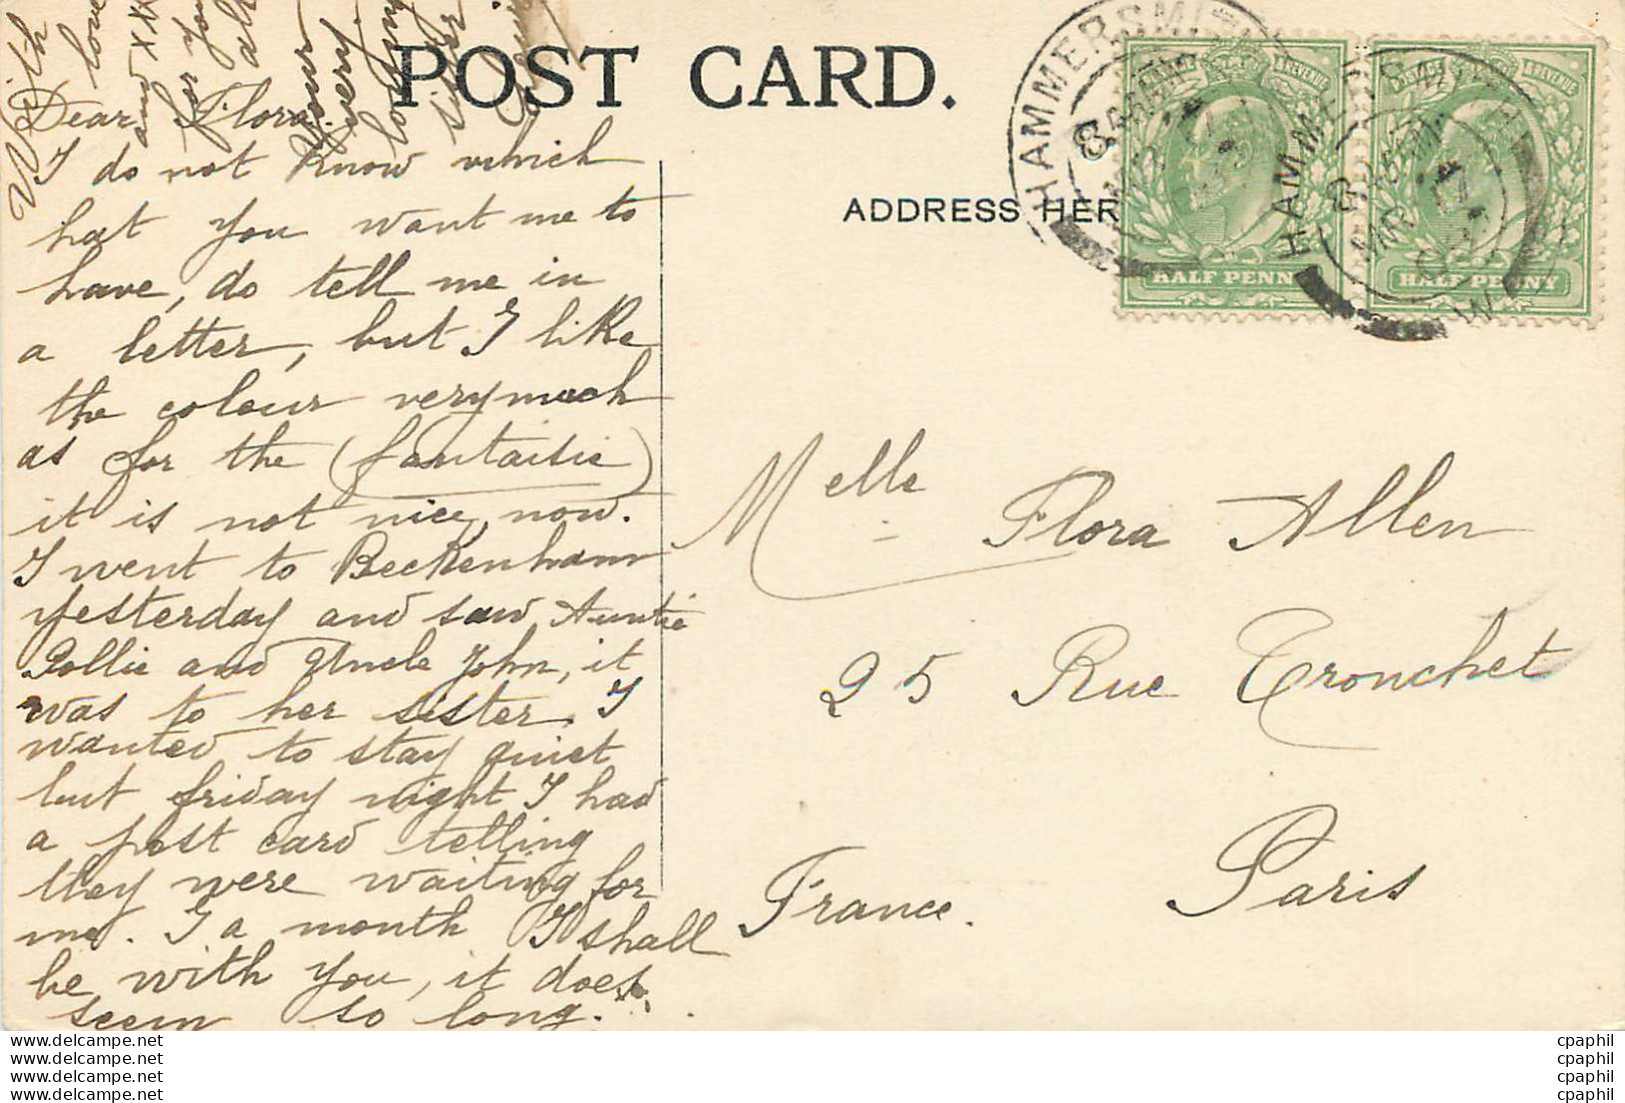 POST CARD.
ADDRESS HER
HAMMERSMITH
HAMMERSMITH
POSTAGE & REVENUE
HALF PENNY
POSTAGE & REVENUE
HALF PENNY
Dear Flora.
I do not know which
hat you want me to
have, do tell me in
a letter, but I like
the colour very much
as for the (fantaisie)
it is not nice, now.
I went to Beckenham
yesterday and saw Auntie
Pollie and Uncle John, it
was to her sister. I
wanted to stay quiet
but friday night I had
a post card telling
they were waiting for
me. I a month I shall
be with you, it does
seem so long.
With
love
and xxx
for you
all
Your
very
loving
sister
Melle Flora Allen
25 Rue Tronchet
Paris
France.
www.delcampe.net
www.delcampe.net
www.delcampe.net
www.delcampe.net
cpaphil
cpaphil
cpaphil
cpaphil